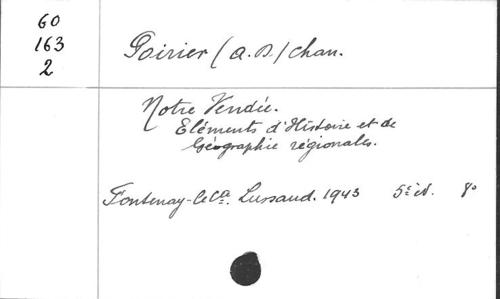 60
163
2
Poirier (A. D.) chan.
Notre Vendée.
Eléments d'Histoire et de
Géographie régionales.
Fontenay-le Cte. Lussaud. 1943 5e éd. 8o